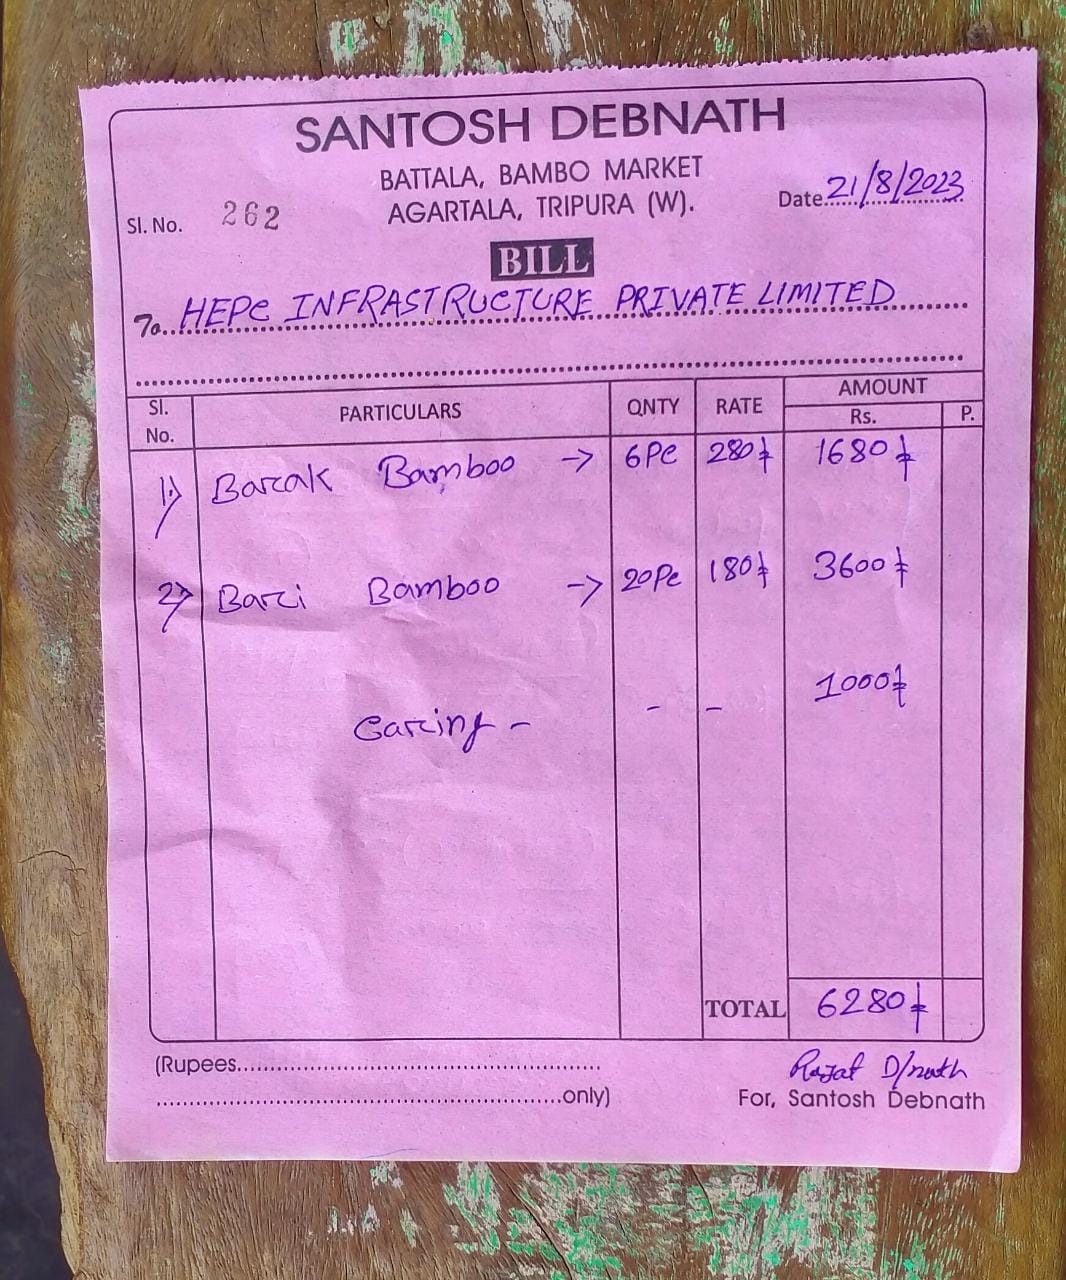 SANTOSH DEBNATH
BATTALA, BAMBO MARKET
AGARTALA, TRIPURA (W).
Sl. No. 262
Date 21/8/2023
BILL
To HEPC INFRASTRUCTURE PRIVATE LIMITED
Sl. No. PARTICULARS QNTY RATE AMOUNT
Rs. P.
1) Barak Bamboo → 6Pc 280/- 1680/-
2) Bari Bamboo → 20Pc 180/- 3600/-
Caring - - - 1000/-
TOTAL 6280/-
(Rupees
only)
Rajat D/nath
For, Santosh Debnath